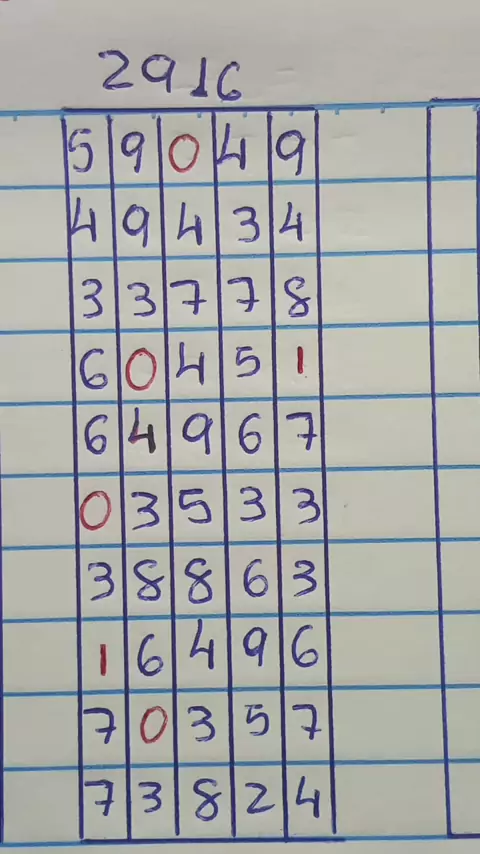 2916
5 9 0 4 9
4 9 4 3 4
3 3 7 7 8
6 0 4 5 1
6 4 9 6 7
0 3 5 3 3
3 8 8 6 3
1 6 4 9 6
7 0 3 5 7
7 3 8 2 4